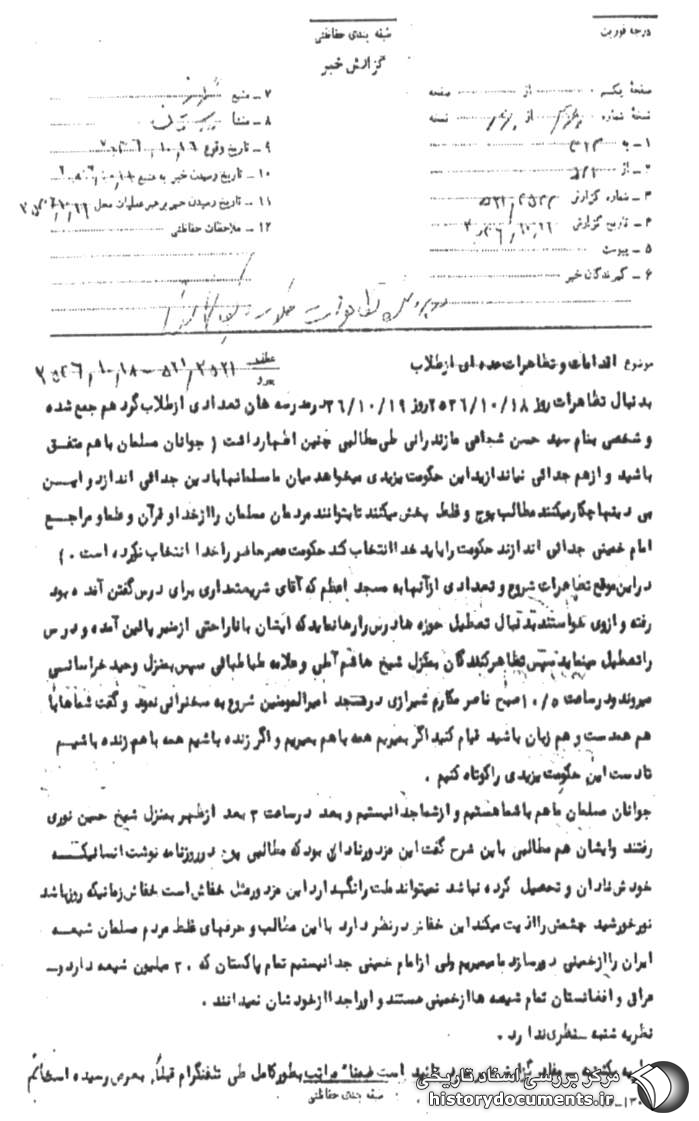 درجه فوریت
طبقه بندی حفاظتی
گزارش خبر
صفحه یکم از صفحه
نسخه شماره از نسخه
۱ ــ به ۳۱۲
۲ ــ از ۵۲۱
۳ ــ شماره گزارش
۴ ــ تاریخ گزارش
۵ ــ پیوست
۶ ــ گیرندگان خبر
۷ ــ منبع
۸ ــ منشأ
۹ ــ تاریخ وقوع
۱۰ ــ تاریخ رسیدن خبر به منبع
۱۱ ــ تاریخ رسیدن خبر برهبر عملیات محل
۱۲ ــ ملاحظات حفاظتی
موضوع اقدامات و تظاهرات عده ای از طلاب
عطف
پیرو
بدنبال تظاهرات روز ۲۵۳۶/۱۰/۱۸ روز ۳۶/۱۰/۱۹ درمدرسه خان تعدادی ازطلاب گرد هم جمع شده
و شخصی بنام سید حسن شجاعی مازندرانی طی مطالبی چنین اظهارداشت ( جوانان مسلمان با هم متفق
باشید و ازهم جدائی نیاندازید این حکومت یزیدی میخواهد میان ما مسلمانها با دین جدائی اندازد و ایـن
بی دینها چکار میکنند مطالب پوچ و غلط پخش میکنند تا بتوانند مردمان مسلمان را ازخدا و قرآن و علما و مراجـع
امام خمینی جدائی اندازند حکومت را باید خدا انتخاب کند حکومت عصر حاضر را خدا انتخاب نکرده است . )
دراین موقع تظاهرات شروع و تعدادی ازآنها به مسجد اعظم که آقای شریعتمداری برای درس گفتن آمده بود
رفته و ازوی خواستند بدنبال تعطیل حوزه ها درس را رها نماید که ایشان با ناراحتی ازمنبر پائین آمده و درس
را تعطیل مینماید سپس تظاهرکنندگان بمنزل شیخ هاشم آملی و علامه طباطبائی سپس بمنزل وحید خراسانـی
میروند و درساعت ۱۰/۵ صبح ناصر مکارم شیرازی درمسجد امیرالمومنین شروع به سخنرانی نمود و گفت شماها با
هم همدست و هم زبان باشید قیام کنید اگر بمیریم همه با هم بمیریم و اگر زنده باشیم همه با هم زنده باشیـم
تا دست این حکومت یزیدی را کوتاه کنیم .
جوانان مسلمان ما هم با شما هستیم و ازشما جدا نیستیم و بعد درساعت ۳ بعد ازظهر بمنزل شیخ حسین نوری
رفتند و ایشان هم مطالبی باین شرح گفت این مزدور نادان بود که مطالبی پوچ در روزنامه نوشت انسانیکـه
خودش نادان و تحصیل کرده نباشد نمیتواند ملت را نگهدارد این مزدور مثل خفاش است خفاش زمانیکه روز باشد
نور خورشید چشمش را اذیت میکند این خفاش درنظر دارد با این مطالب و حرفهای غلط مردم مسلمان شیعـه
ایران را ازخمینی دور سازد ما میمیریم ولی ازامام خمینی جدا نیستیم تمام پاکستان که ۳۰ میلیون شیعه دارد و ــ
عراق و افغانستان تمام شیعه ها ازخمینی هستند و او را جدا ازخودشان نمیدانند .
نظریه شنبه ــ نظری ندارد .
نظریه یکشنبه ــ مفاد گزارش مورد تائید است ضمناً مراتب بطور کامل طی تلفنگرام قبلاً بعرض رسیده است
طبقه بندی حفاظتی
مرکز بررسی اسناد تاریخی
historydocuments.ir